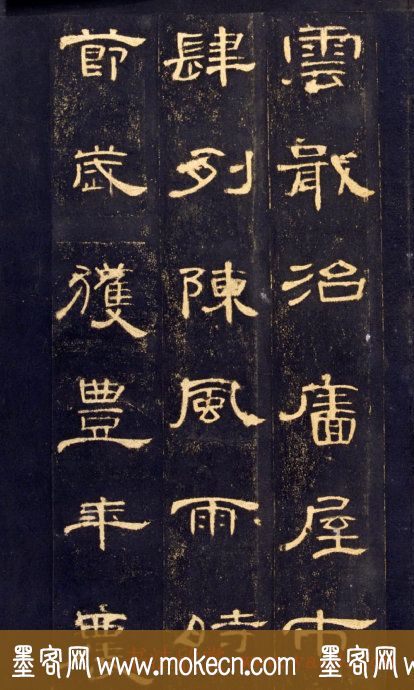 雲散治廧屋市
肆列陳風雨時
節歲獲豐年農
墨客网 www.mokecn.com 墨客网 www.